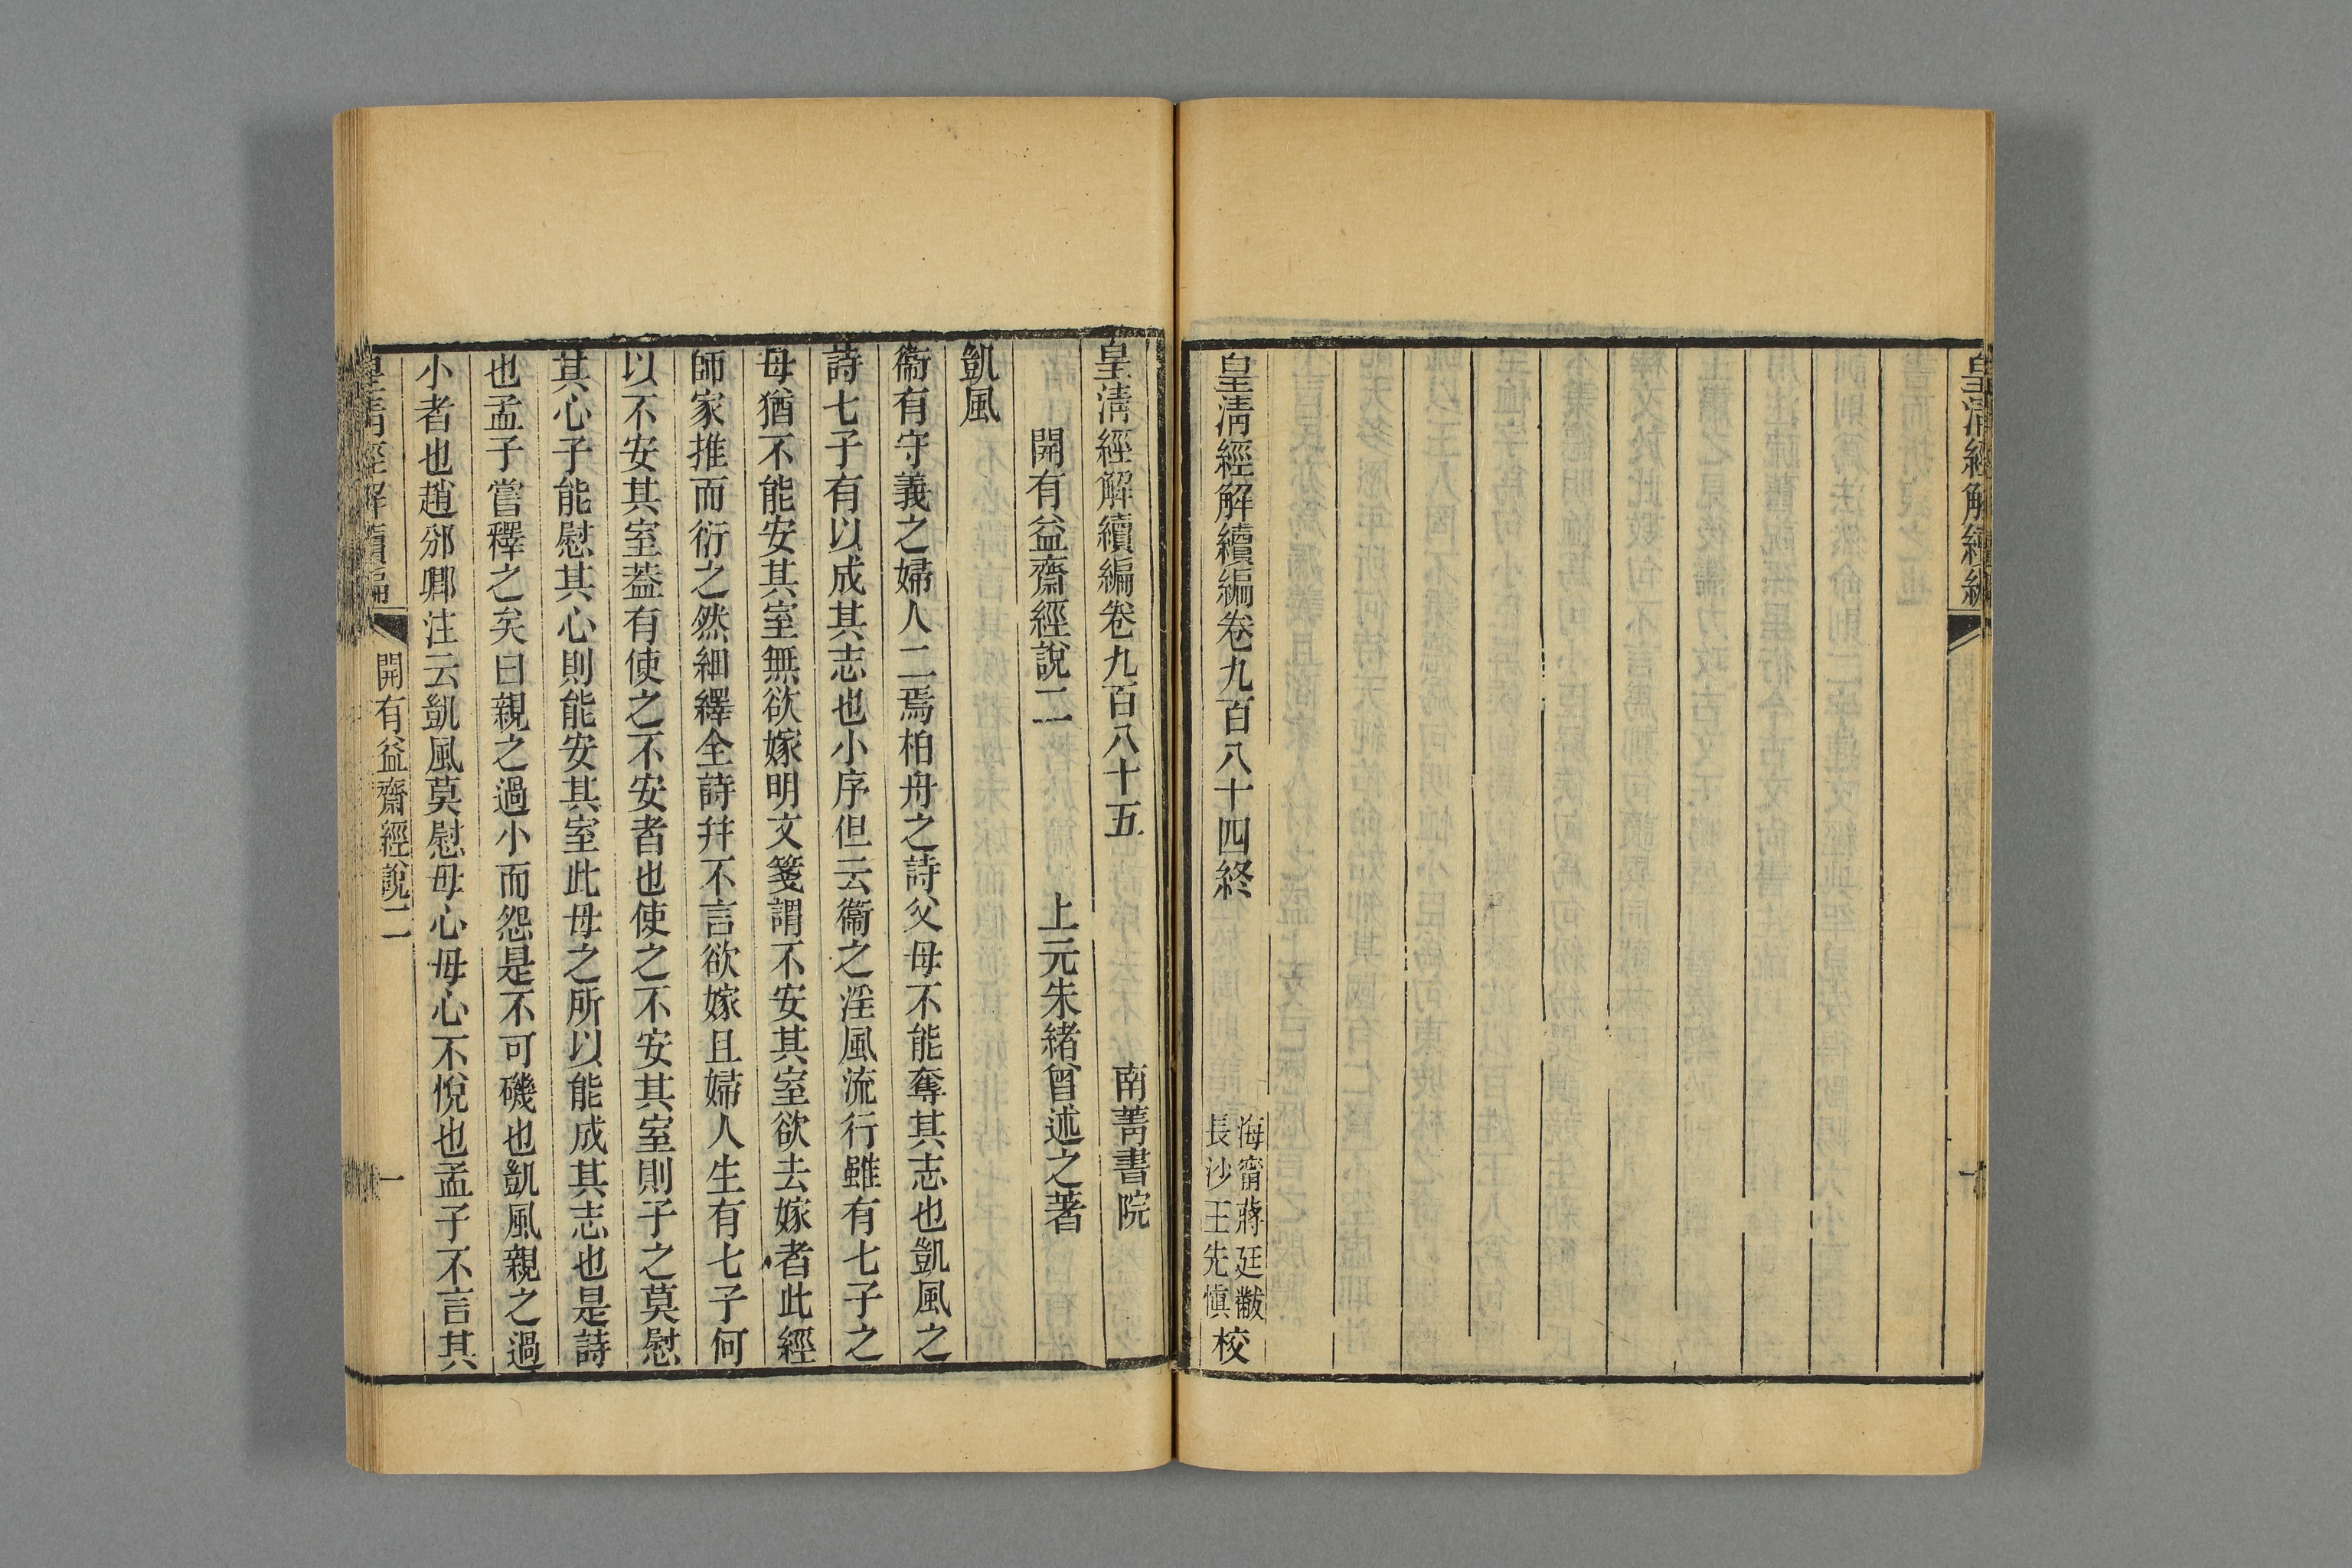 皇清經解續編
皇清經解續編卷九百八十四終
海甯蔣廷黻
長沙王先愼
校
皇淸經解續編卷九百八十五
南菁書院
開有益齋經說二
上元朱緒曾述之著
凱風
衞有守義之婦人二焉柏舟之詩父母不能奪其志也凱風之
詩七子有以成其志也小序但云衞之淫風流行雖有七子之
母猶不能安其室無欲嫁明文箋謂不安其室欲去嫁者此經
師家推而衍之然細繹全詩幷不言欲嫁且婦人生有七子何
以不安其室葢有使之不安者也使之不安其室則子之莫慰
其心子能慰其心則能安其室此母之所以能成其志也是詩
也孟子嘗釋之矣曰親之過小而怨是不可磯也凱風親之過
小者也趙邠卿注云凱風莫慰母心母心不悅也孟子不言其
皇清經解續編
開有益齋經說二
一